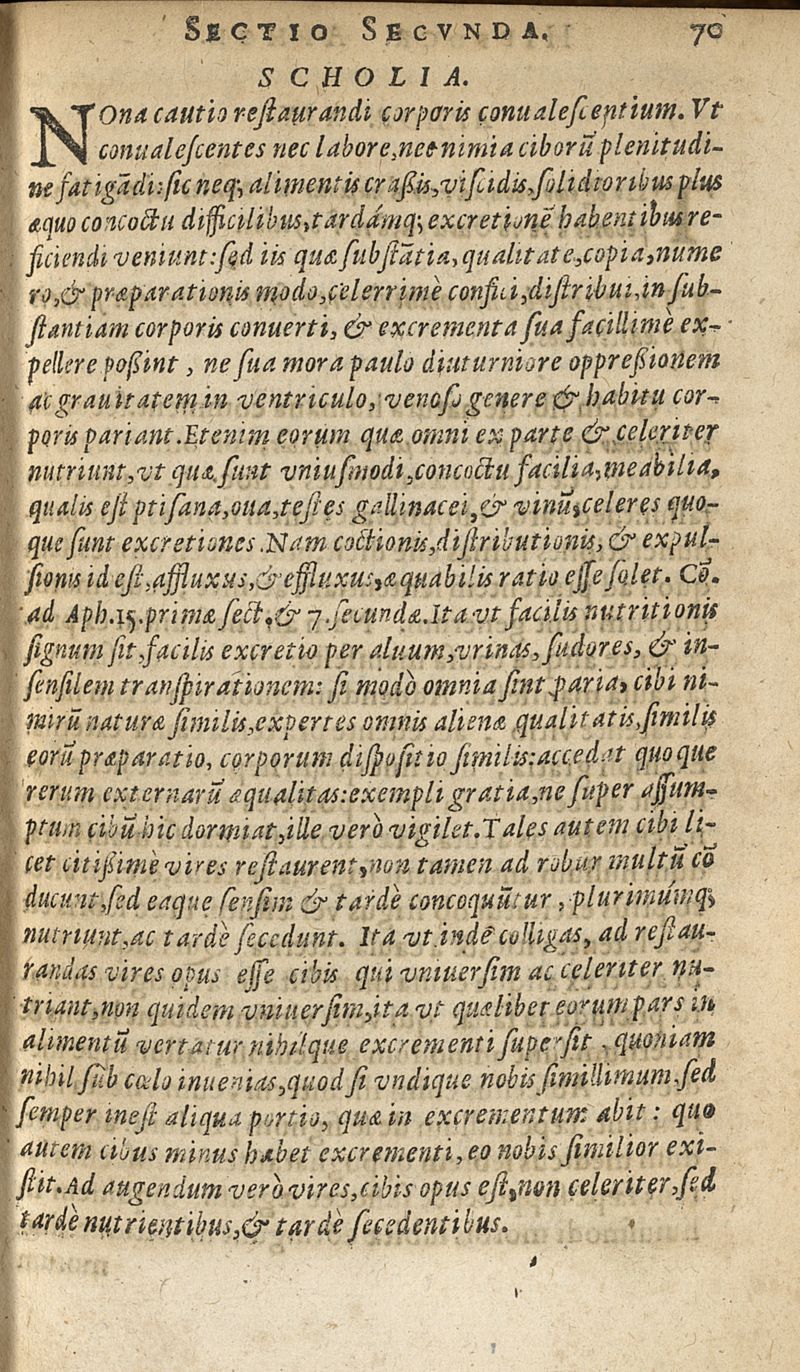 SECTIO SECVNDA. 70
SCHOLIA.
NOna cautio reſtaurandi corporis conualeſcentium. Vt
conualeſcentes nec labore, nec nimia ciborũ plenitudi-
ne fatigãdi: ſic neq; alimentis craßis, viſcidis, ſolidioribus plus
æquo concoctu difficilibus, tardámq; excretionẽ habentibus re-
ficiendi veniunt: ſed iis quæ ſubſtãtia, qualitate, copia, nume
ro, & præparationis modo, celerrimè confici, diſtribui, in ſub-
ſtantiam corporis conuerti, & excrementa ſua facillimè ex-
pellere poßint, ne ſua mora paulo diuturniore oppreßionem
ac grauitatem in ventriculo, venoſo genere & habitu cor-
poris pariant. Etenim eorum quæ omni ex parte & celeriter
nutriunt, vt quæ ſunt vniuſmodi, concoctu facilia, meabilia,
qualis eſt ptiſana, oua, teſtes gallinacei, & vinũ, celeres quo-
que ſunt excretiones. Nam coctionis, diſtributionis, & expul-
ſionis id eſt, affluxus, & effluxus, æquabilis ratio eſſe ſolet. Cõ.
ad Aph. 15. primæ ſect. & 7. ſecundæ. Ita vt facilis nutritionis
ſignum ſit, facilis excretio per aluum, vrinas, ſudores, & in-
ſenſilem tranſpirationem: ſi modò omnia ſint paria, cibi ni-
mirũ naturæ ſimilis, expertes omnis alienæ qualitatis, ſimilis
eorũ præparatio, corporum diſpoſitio ſimilis: accedat quoque
rerum externarũ æqualitas: exempli gratia, ne ſuper aſſum-
ptum cibũ hic dormiat, ille verò vigilet. Tales autem cibi li-
cet citißimè vires reſtaurent, non tamen ad robur multũ cõ
ducunt, ſed eaque ſenſim & tardè concoquũtur, plurimúmq;
nutriunt, ac tardè ſecedunt. Ita vt inde colligas, ad reſtau-
randas vires opus eſſe cibis qui vniuerſim ac celeriter nu-
triant, non quidem vniuerſim, ita vt quælibet eorum pars in
alimentũ vertatur nihilque excrementi ſuperſit, quoniam
nihil ſub cœlo inuenias, quod ſi vndique nobis ſimillimum, ſed
ſemper ineſt aliqua portio, quæ in excrementum abit: quo
autem cibus minus habet excrementi, eo nobis ſimilior exi-
ſtit. Ad augendum verò vires, cibis opus eſt, non celeriter, ſed
tardè nutrientibus, & tardè ſecedentibus.